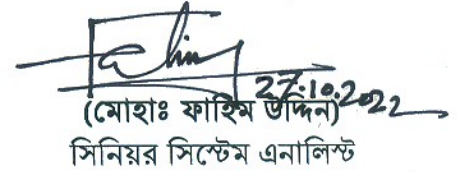 Fahim
27.10.2022
(মোহাঃ ফাহিম উদ্দিন)
সিনিয়র সিস্টেম এনালিস্ট